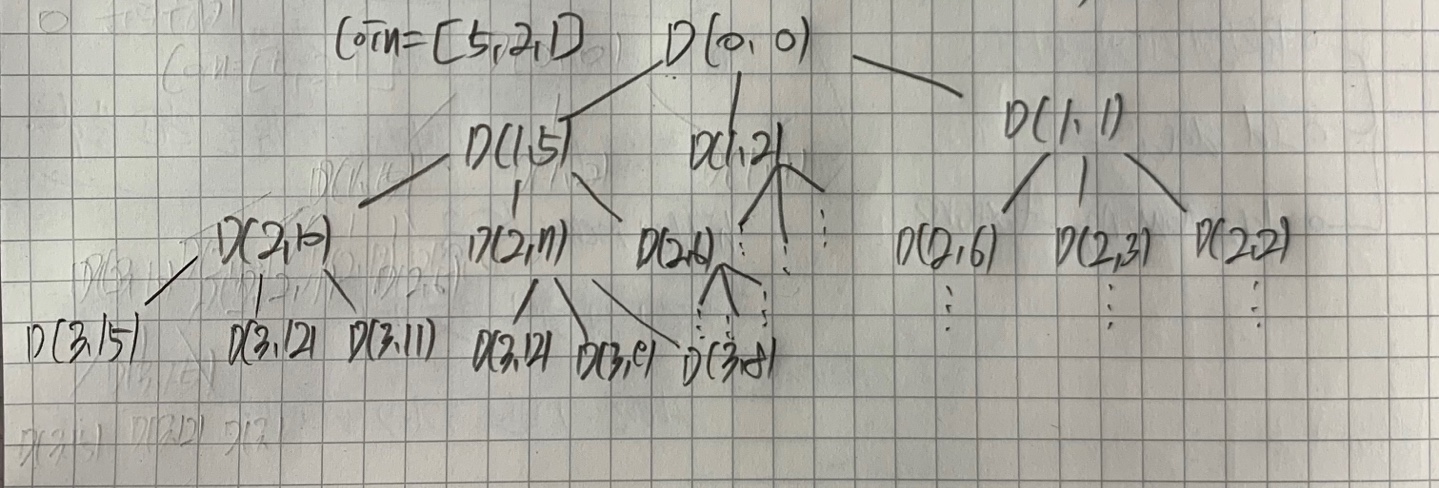 Coin=[5,2,1] D(0,0)
D(1,5) D(1,2) D(1,1)
D(2,10) D(2,7) D(2,6) D(2,6) D(2,3) D(2,2)
D(3,15) D(3,12) D(3,11) D(3,12) D(3,9) D(3,8)